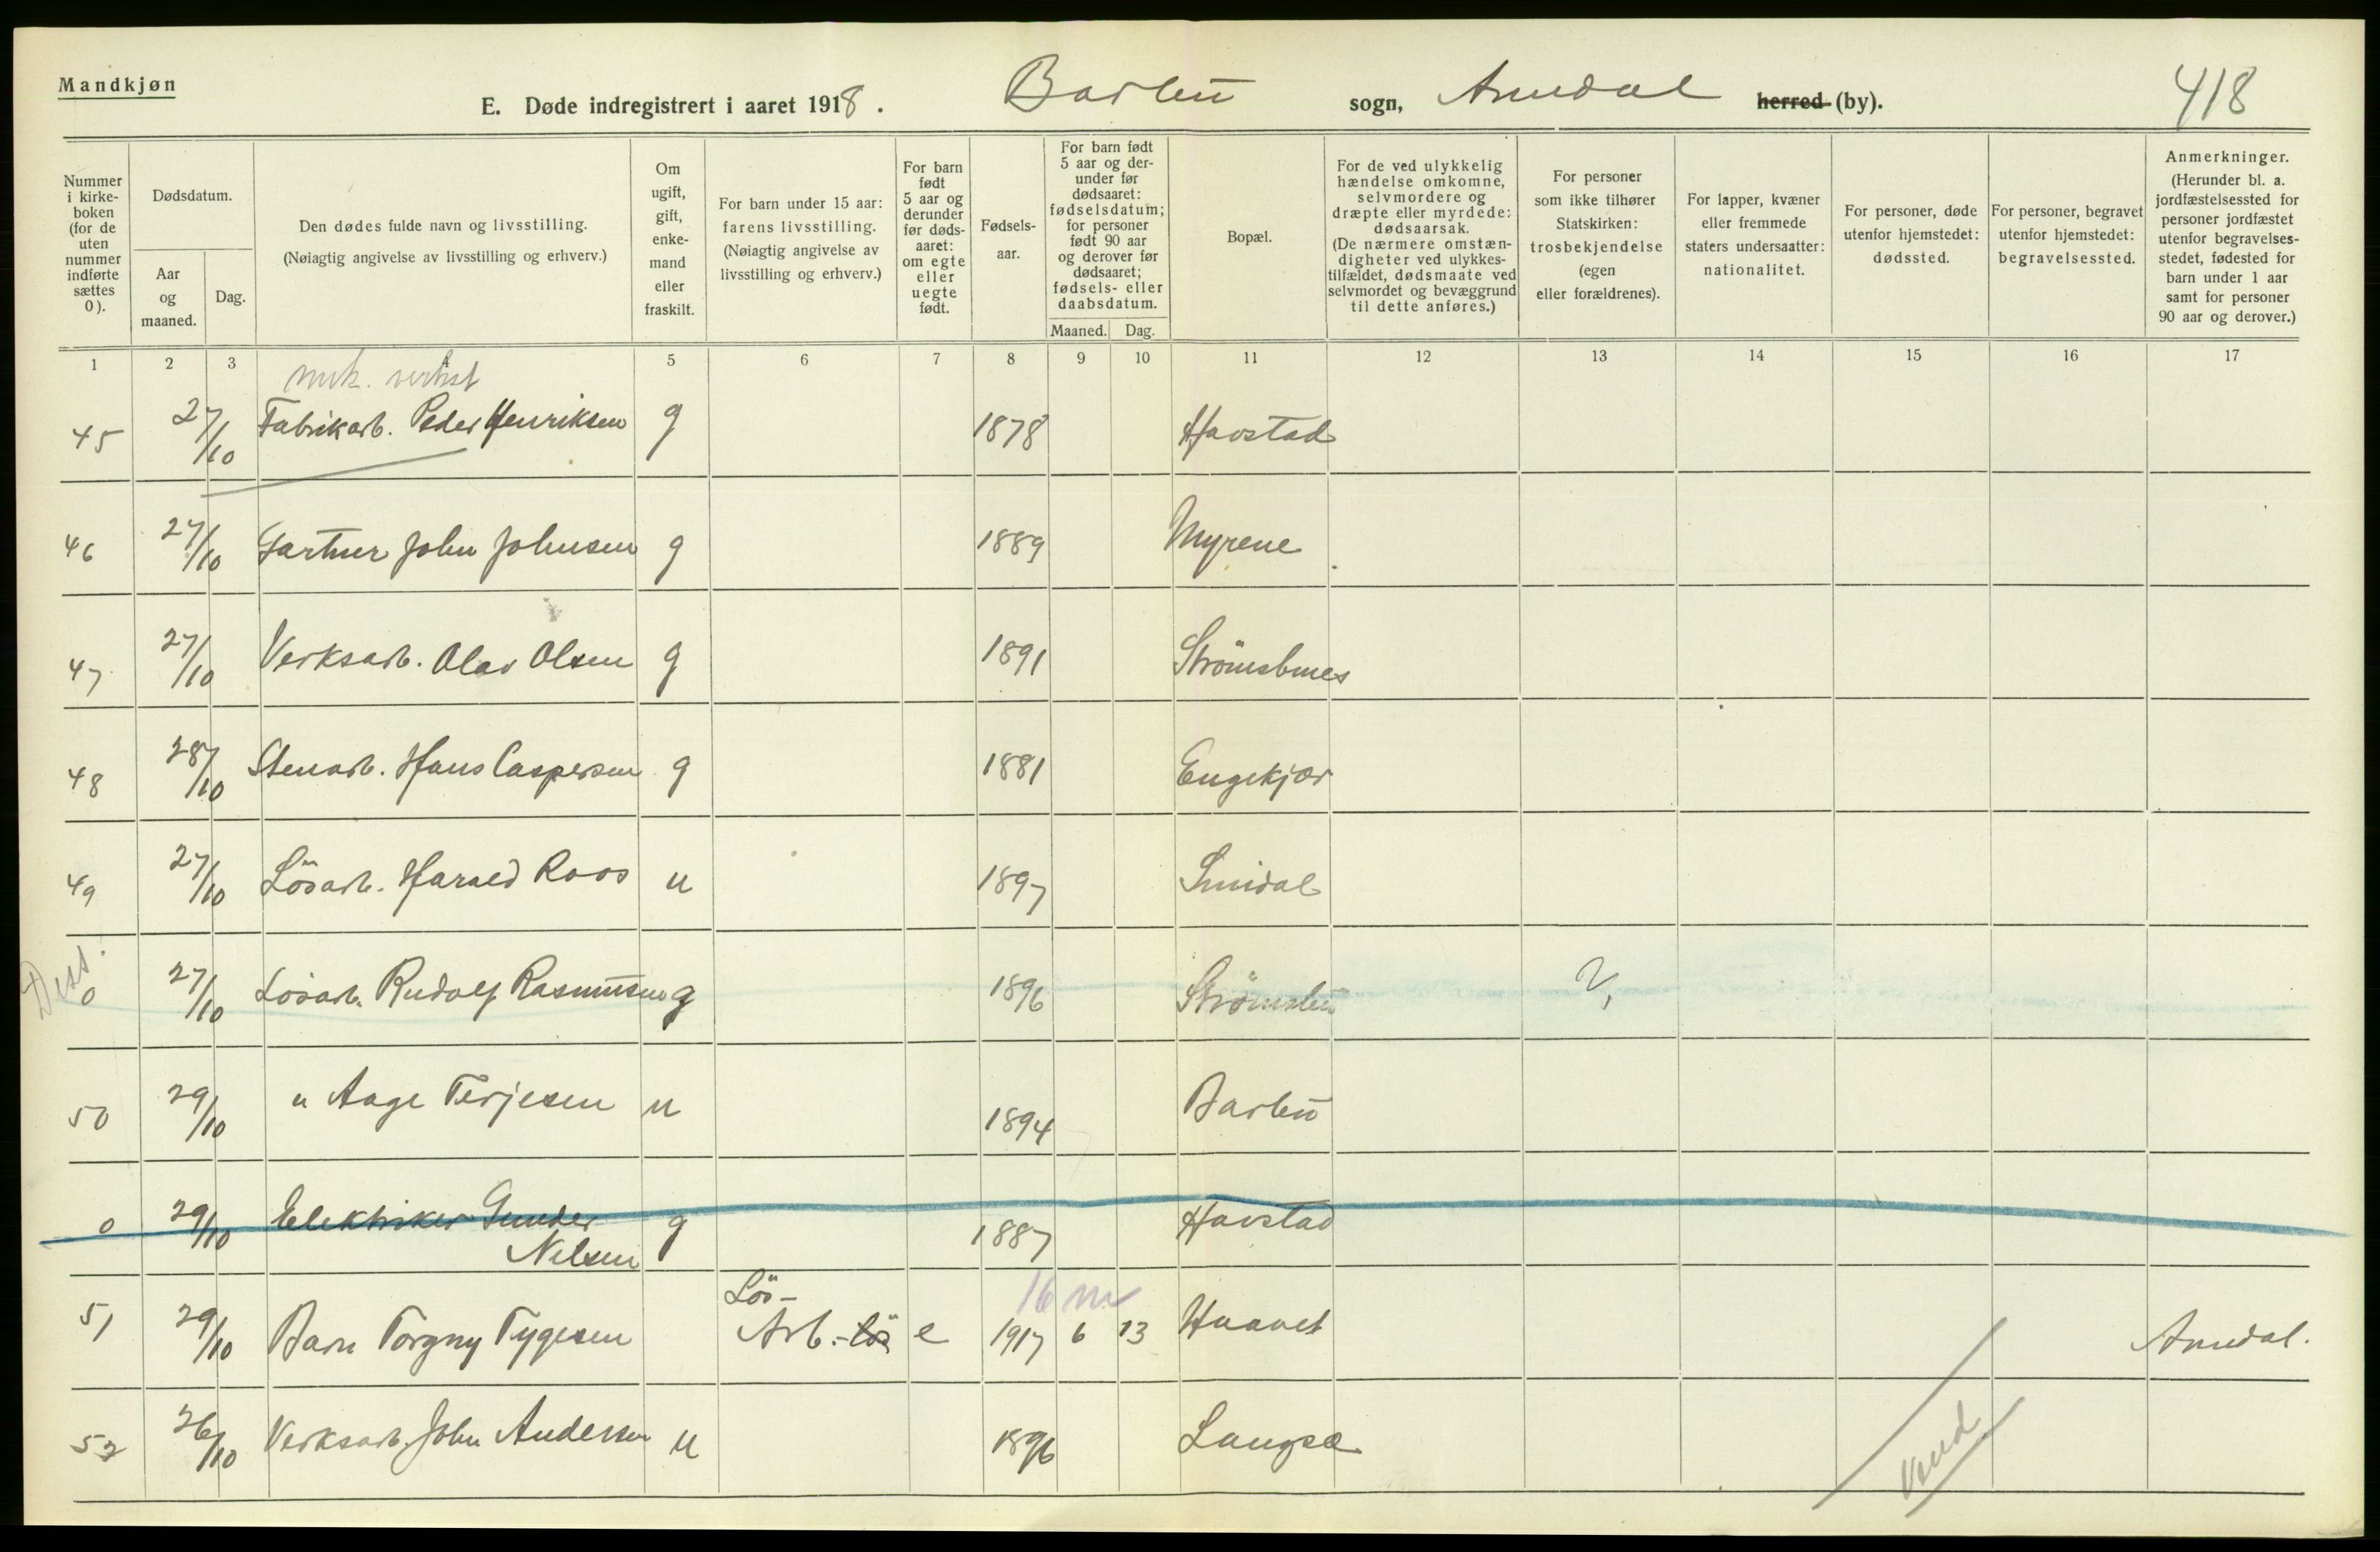 Mandkjøn
E. Døde indregistrert i aaret 1918. Barbu sogn, Arendal herred (by). 418
Nummer i kirke-boken (for de uten nummer indførte sættes 0).
Dødsdatum.
Aar og maaned.
Dag.
Den dødes fulde navn og livsstilling.
(Nøiagtig angivelse av livsstilling og erhverv.)
Om ugift, gift, enke-mand eller fraskilt.
For barn under 15 aar: farens livsstilling.
(Nøiagtig angivelse av livsstilling og erhverv.)
For barn født 5 aar og derunder før døds-aaret: om egte eller uegte født.
Fødsels-aar.
For barn født 5 aar og der-under før dødsaaret: fødselsdatum; for personer født 90 aar og derover før dødsaaret; fødsels- eller daabsdatum.
Maaned. Dag.
Bopæl.
For de ved ulykkelig hændelse omkomne, selvmordere og dræpte eller myrdede: dødsaarsak.
(De nærmere omstæn-digheter ved ulykkes-tilfældet, dødsmaate ved selvmordet og bevæggrund til dette anføres.)
For personer som ikke tilhører Statskirken: trosbekjendelse (egen eller forældrenes).
For lapper, kvæner eller fremmede staters undersaatter: nationalitet.
For personer, døde utenfor hjemstedet: dødssted.
For personer, begravet utenfor hjemstedet: begravelsessted.
Anmerkninger.
(Herunder bl. a. jordfæstelsessted for personer jordfæstet utenfor begravelses-stedet, fødested for barn under 1 aar samt for personer 90 aar og derover.)
1 2 3 4 5 6 7 8 9 10 11 12 13 14 15 16 17
mek. verkst
45 27/10 Fabrikarb. Peder Henriksen g 1878 Havstad
46 27/10 Gartner John Johnsen g 1889 Myrene
47 27/10 Verksarb. Olav Olsen g 1891 Strömsbunes
48 28/10 Stenarb. Hans Caspersen g 1881 Engekjær
49 27/10 Lösarb. Harald Roos u 1897
0 27/10 Lösarb. Rudolf Rasmussen g 1896 Strömsbu
50 29/10 " Aage Terjesen u 1894 Barbu
0 29/10 Elektriker Gunder g 1887 Havstad
Nelsen
Lös- 16 m
51 29/10 Barn Torgny Tygesen Arb.-lös e 1917 6 13 Haavet Arendal.
52 26/10 Verksarb. John Andersen u 1896 Langsæ
Vend